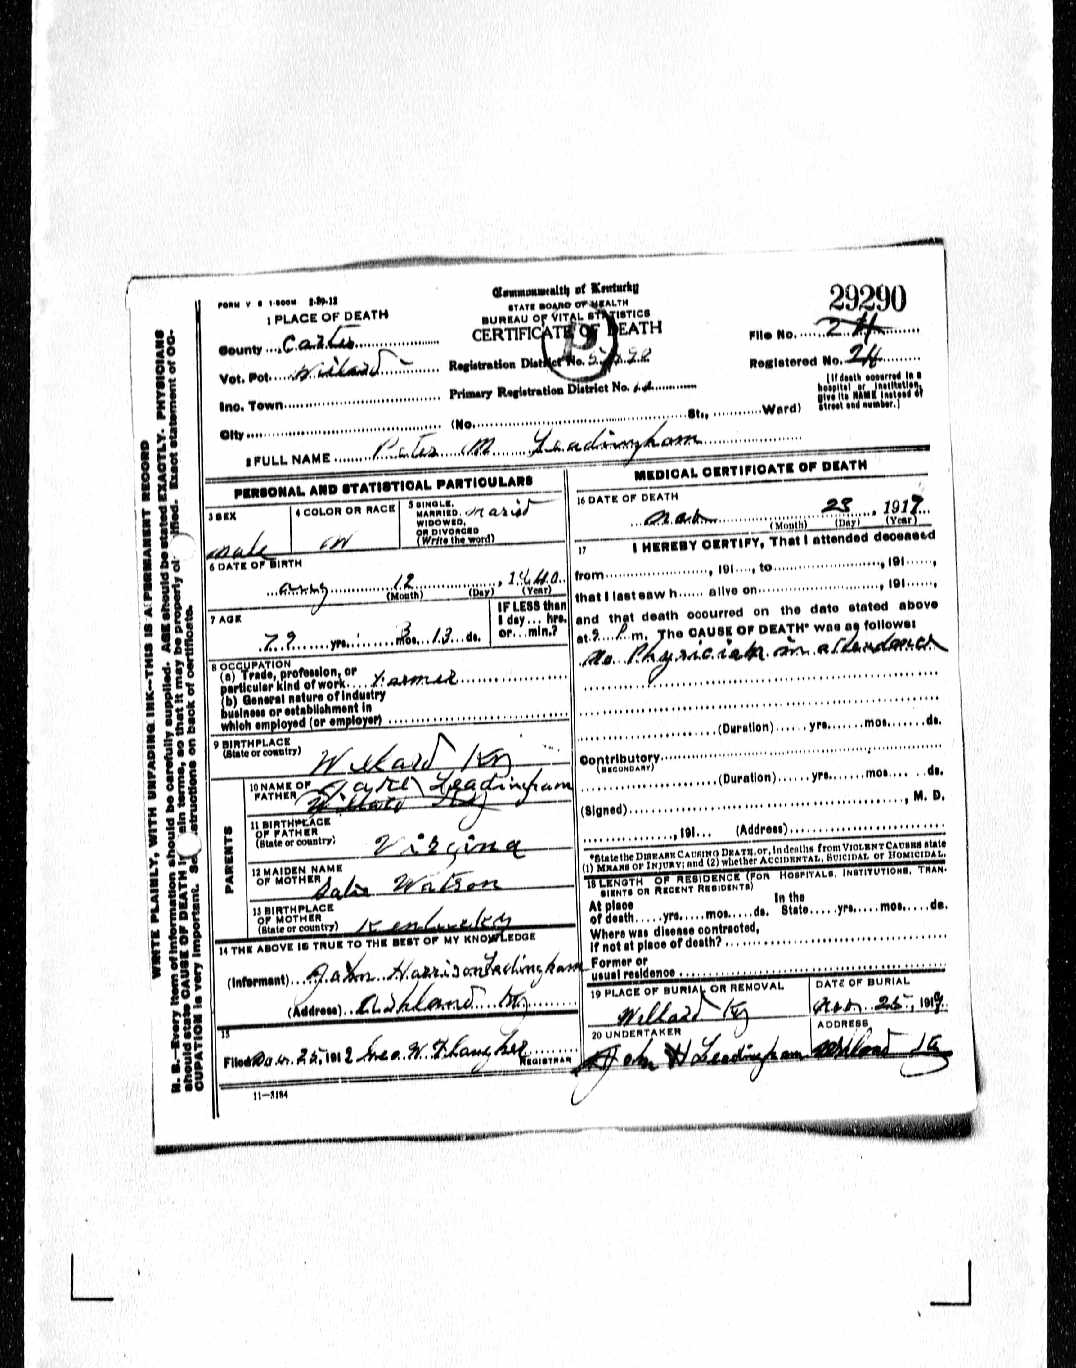 FORM V S 1-500M 5-20-12
Commonwealth of Kentucky
STATE BOARD OF HEALTH
BUREAU OF VITAL STATISTICS
CERTIFICATE OF DEATH
29290
1 PLACE OF DEATH
County ...Carter
Vot. Pct. Willard
Inc. Town
City
Registration District No.
Primary Registration District No.
(No. St., Ward)
File No. 24
Registered No. 24
[If death occurred in a
hospital or institution,
give its NAME instead of
street and number.]
2 FULL NAME Peter M Leadingham
PERSONAL AND STATISTICAL PARTICULARS
3 SEX
male
4 COLOR OR RACE
W
5 SINGLE,
MARRIED,
WIDOWED,
OR DIVORCED
(Write the word)
6 DATE OF BIRTH
Aug 12, 1840
(Month) (Day) (Year)
7 AGE
79 yrs. 3 mos. 13 ds.
IF LESS than
1 day... hrs.
or... min.?
8 OCCUPATION
(a) Trade, profession, or
particular kind of work Farmer
(b) General nature of industry
business or establishment in
which employed (or employer)
9 BIRTHPLACE
(State or country)
Willard Ky
PARENTS
10 NAME OF
FATHER
Leadingham
Willard Ky
11 BIRTHPLACE
OF FATHER
(State or country)
Virgina
12 MAIDEN NAME
OF MOTHER
Watson
13 BIRTHPLACE
OF MOTHER
(State or country)
Kentucky
14 THE ABOVE IS TRUE TO THE BEST OF MY KNOWLEDGE
(Informant) John Harrison Leadingham
(Address) Ashland Ky
15
Filed 25, 191 Geo. W. REGISTRAR
11—3184
MEDICAL CERTIFICATE OF DEATH
16 DATE OF DEATH
23, 191
(Month) (Day) (Year)
17 I HEREBY CERTIFY, That I attended deceased
from , 191 , to , 191 ,
that I last saw h alive on , 191 ,
and that death occurred on the date stated above
at 9 P m. The CAUSE OF DEATH* was as follows:
No Physician in attendance
(Duration) yrs. mos. ds.
Contributory
(SECONDARY)
(Duration) yrs. mos. ds.
(Signed) , M. D.
, 191 (Address)
*State the DISEASE CAUSING DEATH, or, in deaths from VIOLENT CAUSES state
(1) MEANS OF INJURY; and (2) whether ACCIDENTAL, SUICIDAL or HOMICIDAL.
18 LENGTH OF RESIDENCE (FOR HOSPITALS, INSTITUTIONS, TRAN-
SIENTS OR RECENT RESIDENTS)
At place In the
of death yrs. mos. ds. State yrs. mos. ds.
Where was disease contracted,
if not at place of death?
Former or
usual residence
19 PLACE OF BURIAL OR REMOVAL
Willard Ky
DATE OF BURIAL
Nov. 25, 1919
20 UNDERTAKER
John H Leadingham
ADDRESS
Willard Ky
N. B.—Every item of information should be carefully supplied. AGE should be stated EXACTLY. PHYSICIANS
should state CAUSE OF DEATH in plain terms, so that it may be properly classified. Exact statement of OC-
CUPATION is very important. See instructions on back of certificate.
WRITE PLAINLY, WITH UNFADING INK—THIS IS A PERMANENT RECORD